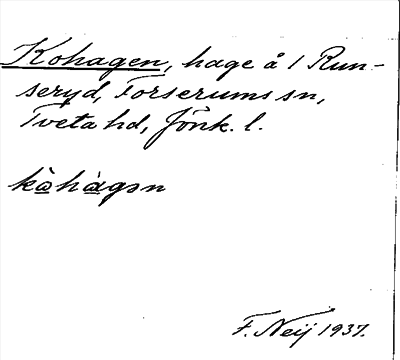 Kohagen, hage å 1 Run-
seryd, Forserums sn,
Tveta hd, Jönk. l.
kòhàgən
F. Neij 1937.